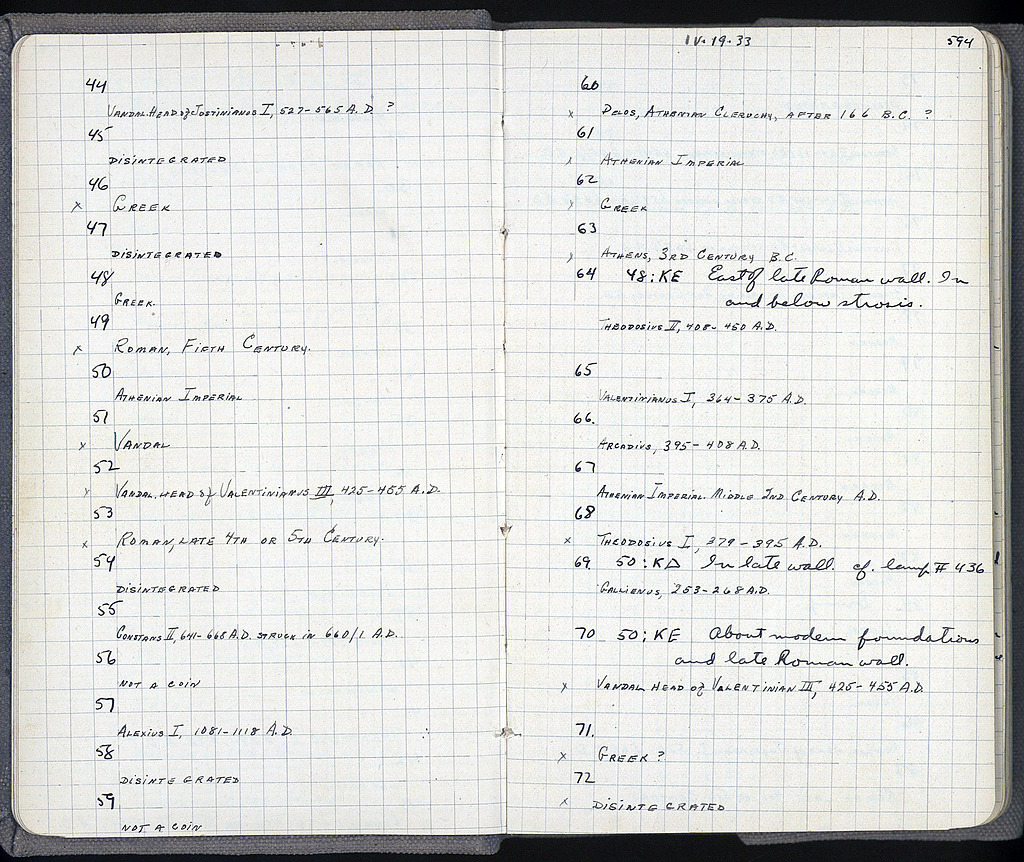 44
VANDAL. HEAD of JUSTINIANUS I, 527-565 A.D. ?
45
DISINTEGRATED
46
x GREEK
47
DISINTEGRATED
48
GREEK.
49
x ROMAN, FIFTH CENTURY.
50
ATHENIAN IMPERIAL
51
x VANDAL
52
x VANDAL. HEAD of VALENTINIANUS III, 425-455 A.D.
53
x ROMAN, LATE 4TH OR 5TH CENTURY.
54
DISINTEGRATED
55
CONSTANS II, 641-668 A.D. STRUCK IN 660/1 A.D.
56
NOT A COIN
57
ALEXIUS I, 1081-1118 A.D.
58
DISINTEGRATED
59
NOT A COIN
IV-19-33 594
60
x DELOS, ATHENIAN CLERUCHY, AFTER 166 B.C. ?
61
x ATHENIAN IMPERIAL
62
x GREEK
63
x ATHENS, 3RD CENTURY B.C.
64 48:KE East of late Roman wall. In
and below strosis.
THEODOSIUS II, 408-450 A.D.
65
VALENTINIANUS I, 364-375 A.D.
66.
ARCADIUS, 395-408 A.D.
67
ATHENIAN IMPERIAL. MIDDLE 2ND CENTURY A.D.
68
x THEODOSIUS I, 379-395 A.D.
69. 50:KΔ In late wall. cf. lamp # 436
GALLIENUS, 253-268 A.D.
70 50:KE About modern foundations
and late Roman wall.
x VANDAL HEAD of VALENTINIAN III, 425-455 A.D.
71.
x GREEK ?
72
x DISINTEGRATED